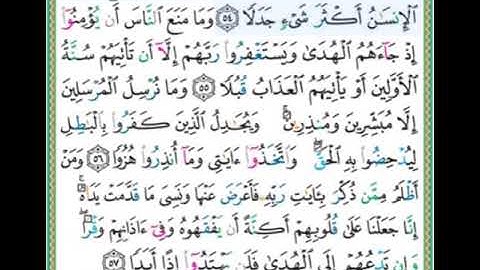 ٱلْإِنسَٰنُ أَكْثَرَ شَىْءٍ جَدَلًا ۝٥٤ وَمَا مَنَعَ ٱلنَّاسَ أَن يُؤْمِنُوٓا۟
إِذْ جَآءَهُمُ ٱلْهُدَىٰ وَيَسْتَغْفِرُوا۟ رَبَّهُمْ إِلَّآ أَن تَأْتِيَهُمْ سُنَّةُ
ٱلْأَوَّلِينَ أَوْ يَأْتِيَهُمُ ٱلْعَذَابُ قُبُلًا ۝٥٥ وَمَا نُرْسِلُ ٱلْمُرْسَلِينَ
إِلَّا مُبَشِّرِينَ وَمُنذِرِينَ ۚ وَيُجَٰدِلُ ٱلَّذِينَ كَفَرُوا۟ بِٱلْبَٰطِلِ
لِيُدْحِضُوا۟ بِهِ ٱلْحَقَّ ۖ وَٱتَّخَذُوٓا۟ ءَايَٰتِى وَمَآ أُنذِرُوا۟ هُزُوًا ۝٥٦ وَمَنْ
أَظْلَمُ مِمَّن ذُكِّرَ بِـَٔايَٰتِ رَبِّهِۦ فَأَعْرَضَ عَنْهَا وَنَسِىَ مَا قَدَّمَتْ يَدَاهُ ۚ
إِنَّا جَعَلْنَا عَلَىٰ قُلُوبِهِمْ أَكِنَّةً أَن يَفْقَهُوهُ وَفِىٓ ءَاذَانِهِمْ وَقْرًا ۖ
وَإِن تَدْعُهُمْ إِلَى ٱلْهُدَىٰ فَلَن يَهْتَدُوٓا۟ إِذًا أَبَدًا ۝٥٧